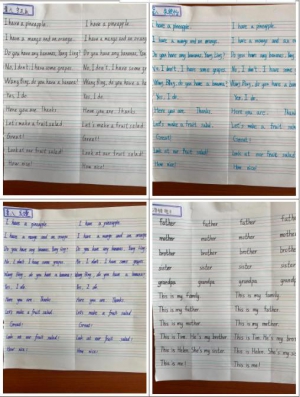 I have a pineapple. I have a pineapple.
I have a mango and an orange. I have a mango and an orange.
Do you have any bananas, Yang Ling? Do you have any bananas, Yang Ling?
No, I don't. I have some grapes. No, I don't. I have some grapes.
Wang Bing, do you have a banana? Wang Bing, do you have a banana?
Yes, I do. Yes, I do.
Here you are. Thanks. Here you are. Thanks.
Let's make a fruit salad. Let's make a fruit salad.
Great! Great!
Look at our fruit salad! Look at our fruit salad!
How nice! How nice!
I have a pineapple. I have a pineapple.
I have a mango and an orange. I have a mango and an
Do you have any bananas, Yang Ling? Do you have any bananas,
No, I don't. I have some grapes. No, I don't. I have some
Wang Bing, do you have a banana? Wang Bing, do you have a
Yes, I do. Yes, I do.
Here you are. Thanks. Here you are. Thanks.
Let's make a fruit salad. Let's make a fruit salad.
Great! Great!
Look at our fruit salad! Look at our fruit salad!
How nice! How nice!
I have a pineapple. I have a pineapple.
I have a mango and an orange. I have a mango and an orange.
Do you have any bananas, Yang Ling? Do you have any bananas, Yang Ling?
No, I don't. I have some grapes. No, I don't. I have some grapes.
Wang Bing, do you have a banana? Wang Bing, do you have a banana?
Yes, I do. Yes, I do.
Here you are. Thanks. Here you are. Thanks.
Let's make a fruit salad. Let's make a fruit salad.
Great! Great!
Look at our fruit salad! Look at our fruit salad!
How nice! How nice!
father father father father
mother mother mother mother
brother brother brother brother
sister sister sister sister
grandpa grandpa grandpa grandpa
This is my family. This is my family.
This is my father. This is my father.
This is my mother. This is my mother.
This is Tim. He's my brother. This is Tim. He's my brother.
This is Helen. She's my sister. This is Helen. She's my
This is me! This is me!